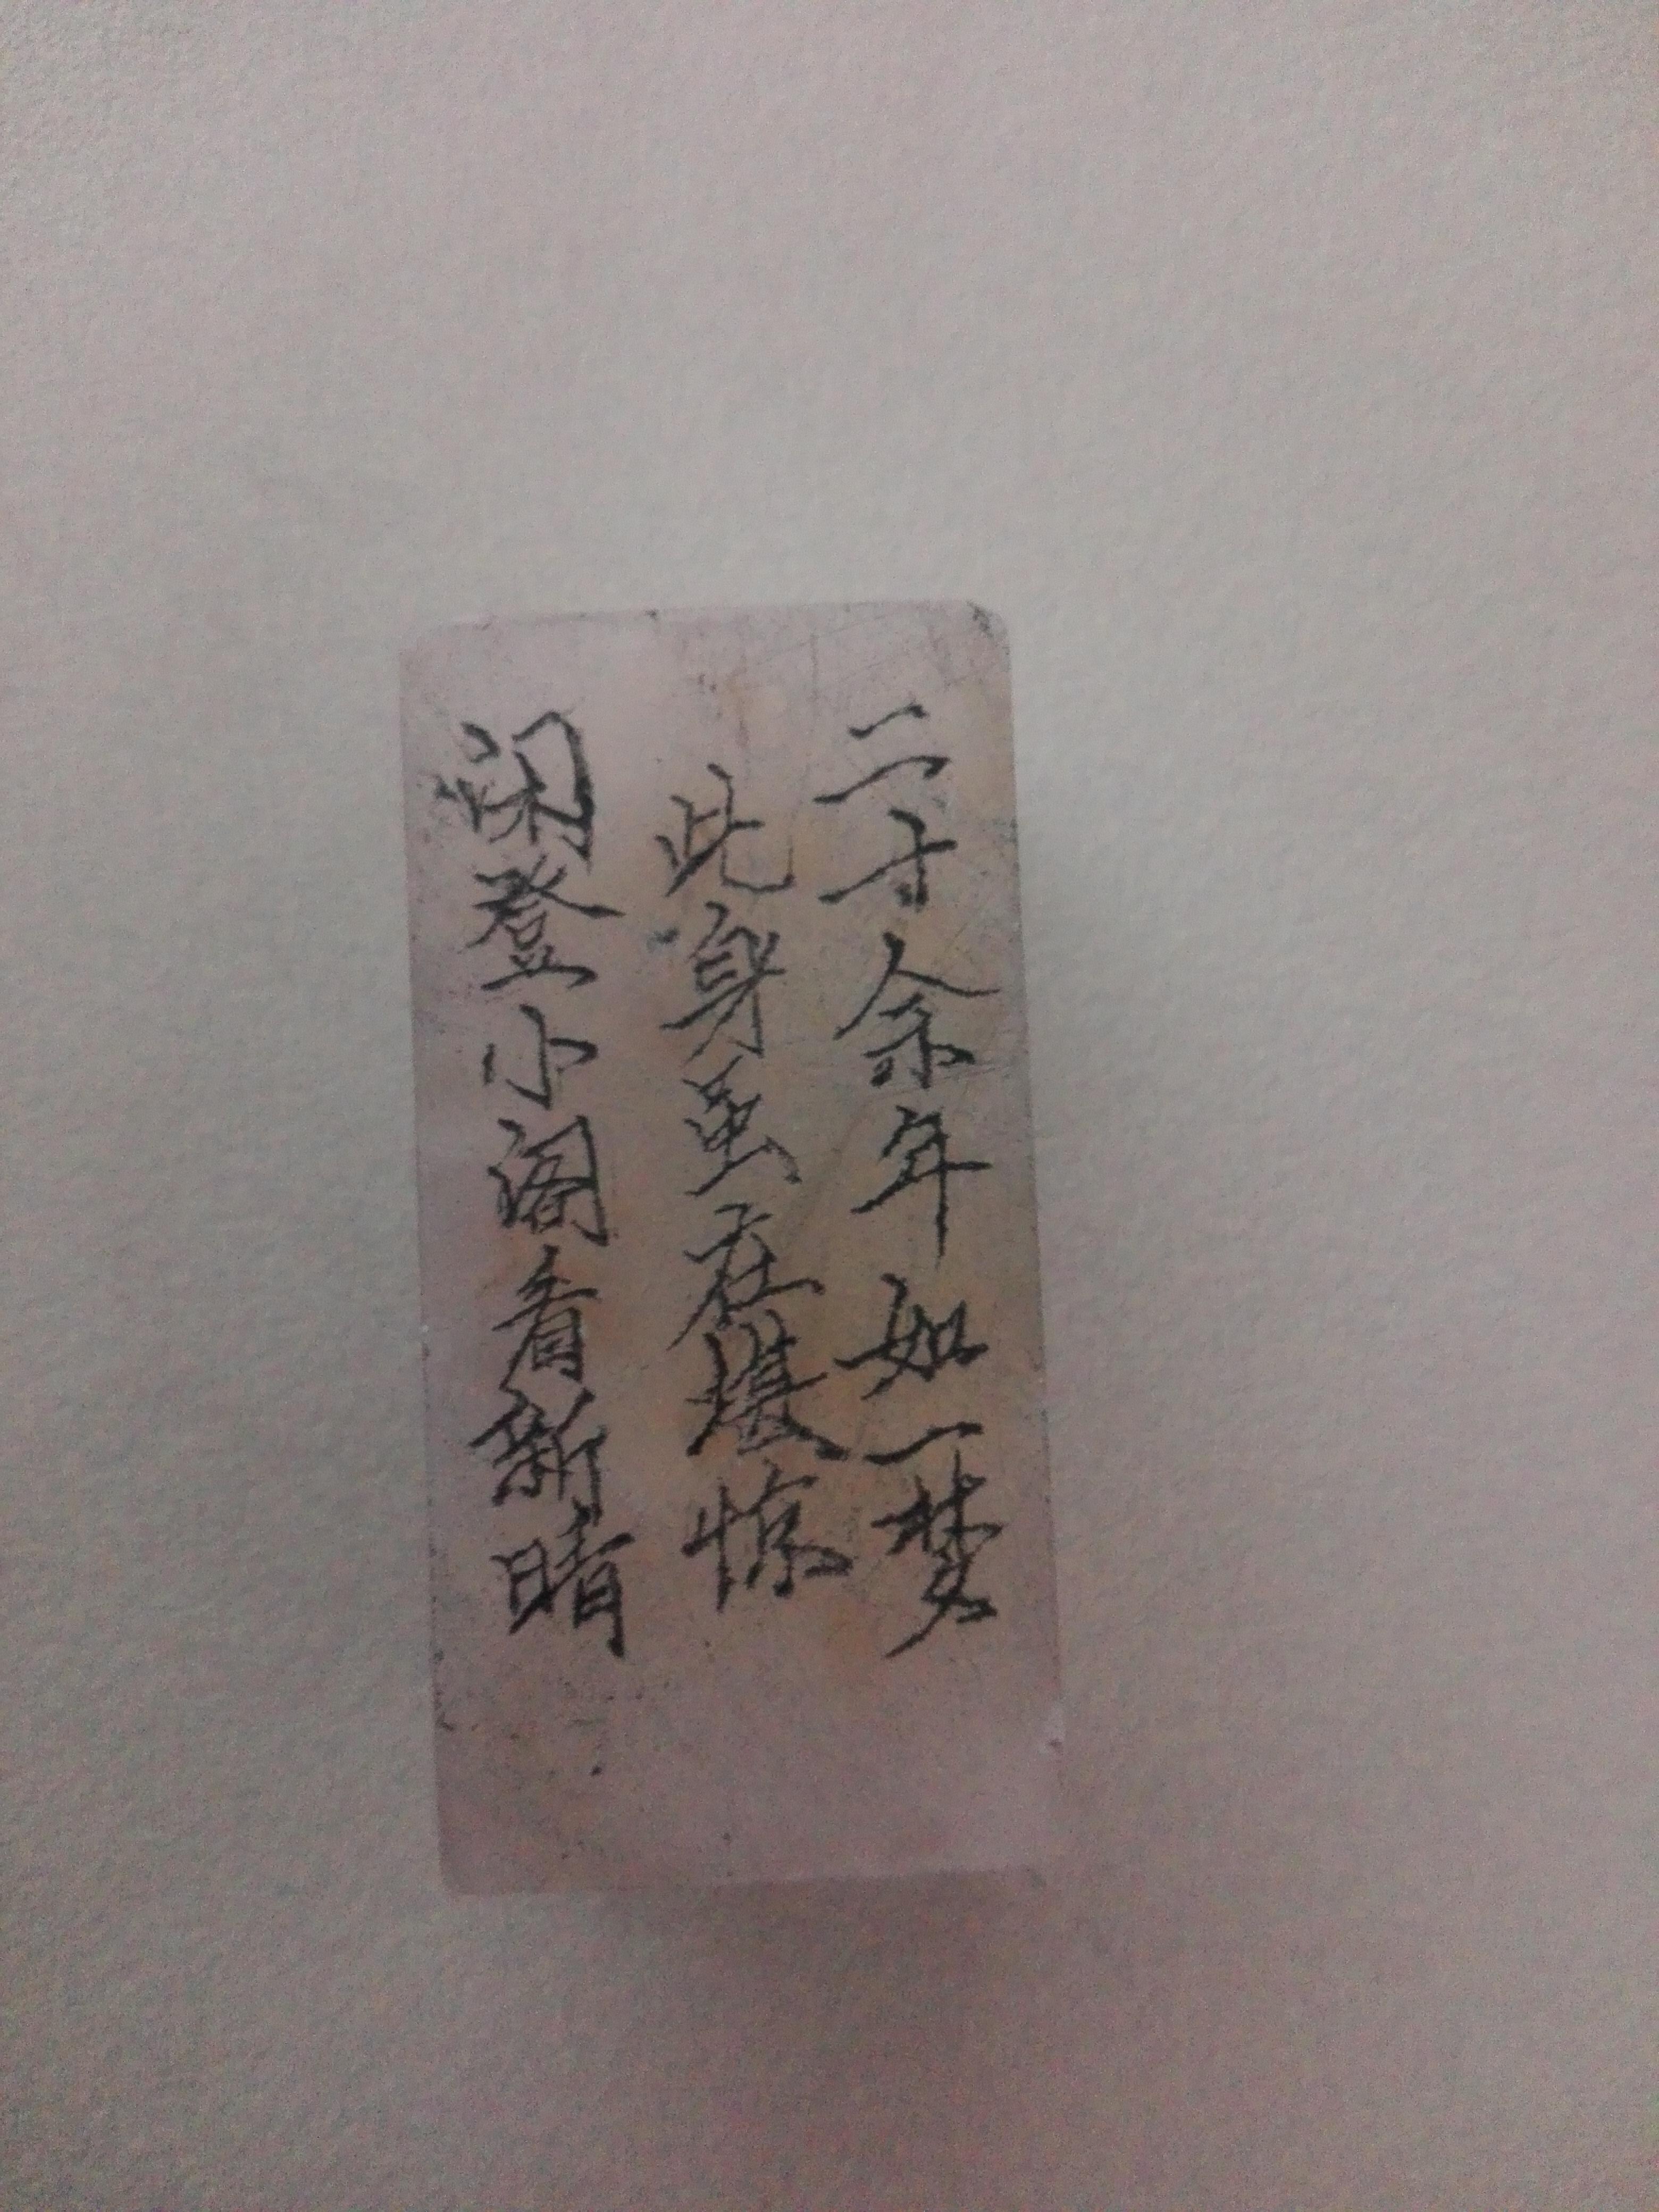 二十余年如一梦
此身虽在堪惊
闲登小阁看新晴